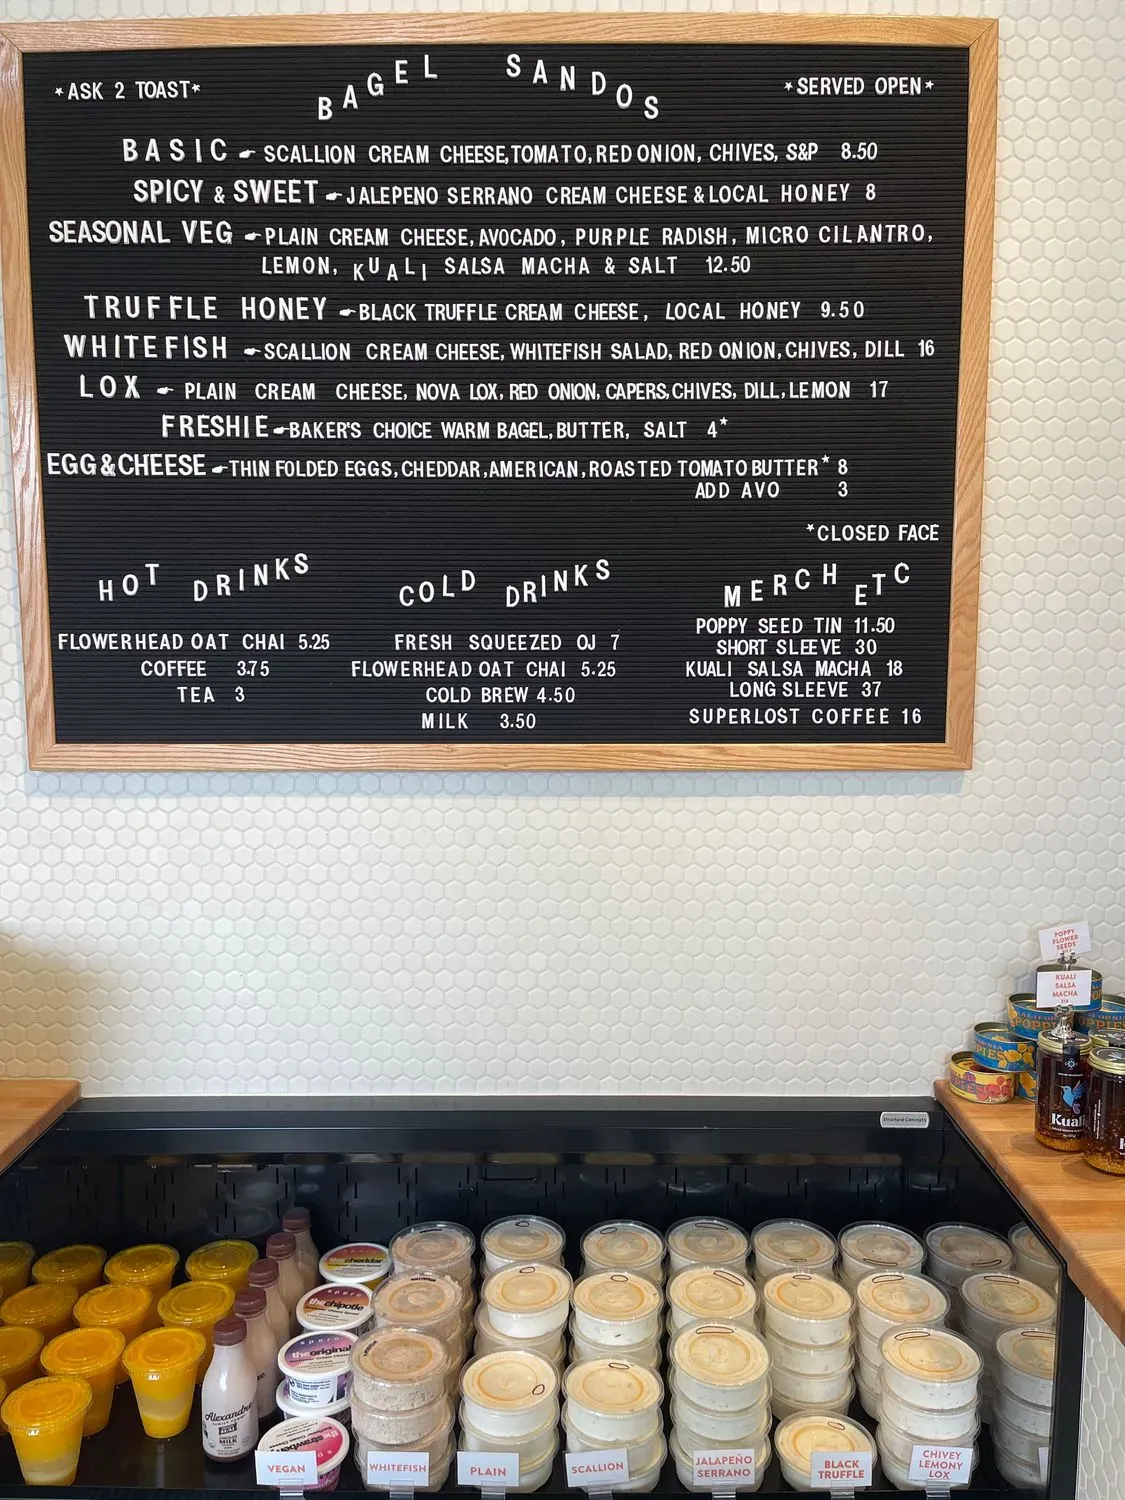 *ASK 2 TOAST*
BAGEL SANDOS
*SERVED OPEN*
BASIC ☛ SCALLION CREAM CHEESE, TOMATO, RED ONION, CHIVES, S&P 8.50
SPICY & SWEET ☛ JALEPENO SERRANO CREAM CHEESE & LOCAL HONEY 8
SEASONAL VEG ☛ PLAIN CREAM CHEESE, AVOCADO, PURPLE RADISH, MICRO CILANTRO,
LEMON, KUALI SALSA MACHA & SALT 12.50
TRUFFLE HONEY ☛ BLACK TRUFFLE CREAM CHEESE, LOCAL HONEY 9.50
WHITEFISH ☛ SCALLION CREAM CHEESE, WHITEFISH SALAD, RED ONION, CHIVES, DILL 16
LOX ☛ PLAIN CREAM CHEESE, NOVA LOX, RED ONION, CAPERS, CHIVES, DILL, LEMON 17
FRESHIE ☛ BAKER'S CHOICE WARM BAGEL, BUTTER, SALT 4*
EGG & CHEESE ☛ THIN FOLDED EGGS, CHEDDAR, AMERICAN, ROASTED TOMATO BUTTER* 8
ADD AVO 3
*CLOSED FACE
HOT DRINKS
FLOWERHEAD OAT CHAI 5.25
COFFEE 3.75
TEA 3
COLD DRINKS
FRESH SQUEEZED OJ 7
FLOWERHEAD OAT CHAI 5.25
COLD BREW 4.50
MILK 3.50
MERCH ETC
POPPY SEED TIN 11.50
SHORT SLEEVE 30
KUALI SALSA MACHA 18
LONG SLEEVE 37
SUPERLOST COFFEE 16
POPPY
FLOWER
SEEDS
KUALI
SALSA
MACHA
$18
Kuali
Structural Concepts
cheddar
spero
the chipotle
spero
the original
the strawberry
Alexandre
MILK
VEGAN
WHITEFISH
PLAIN
SCALLION
JALAPEÑO
SERRANO
BLACK
TRUFFLE
CHIVEY
LEMONY
LOX